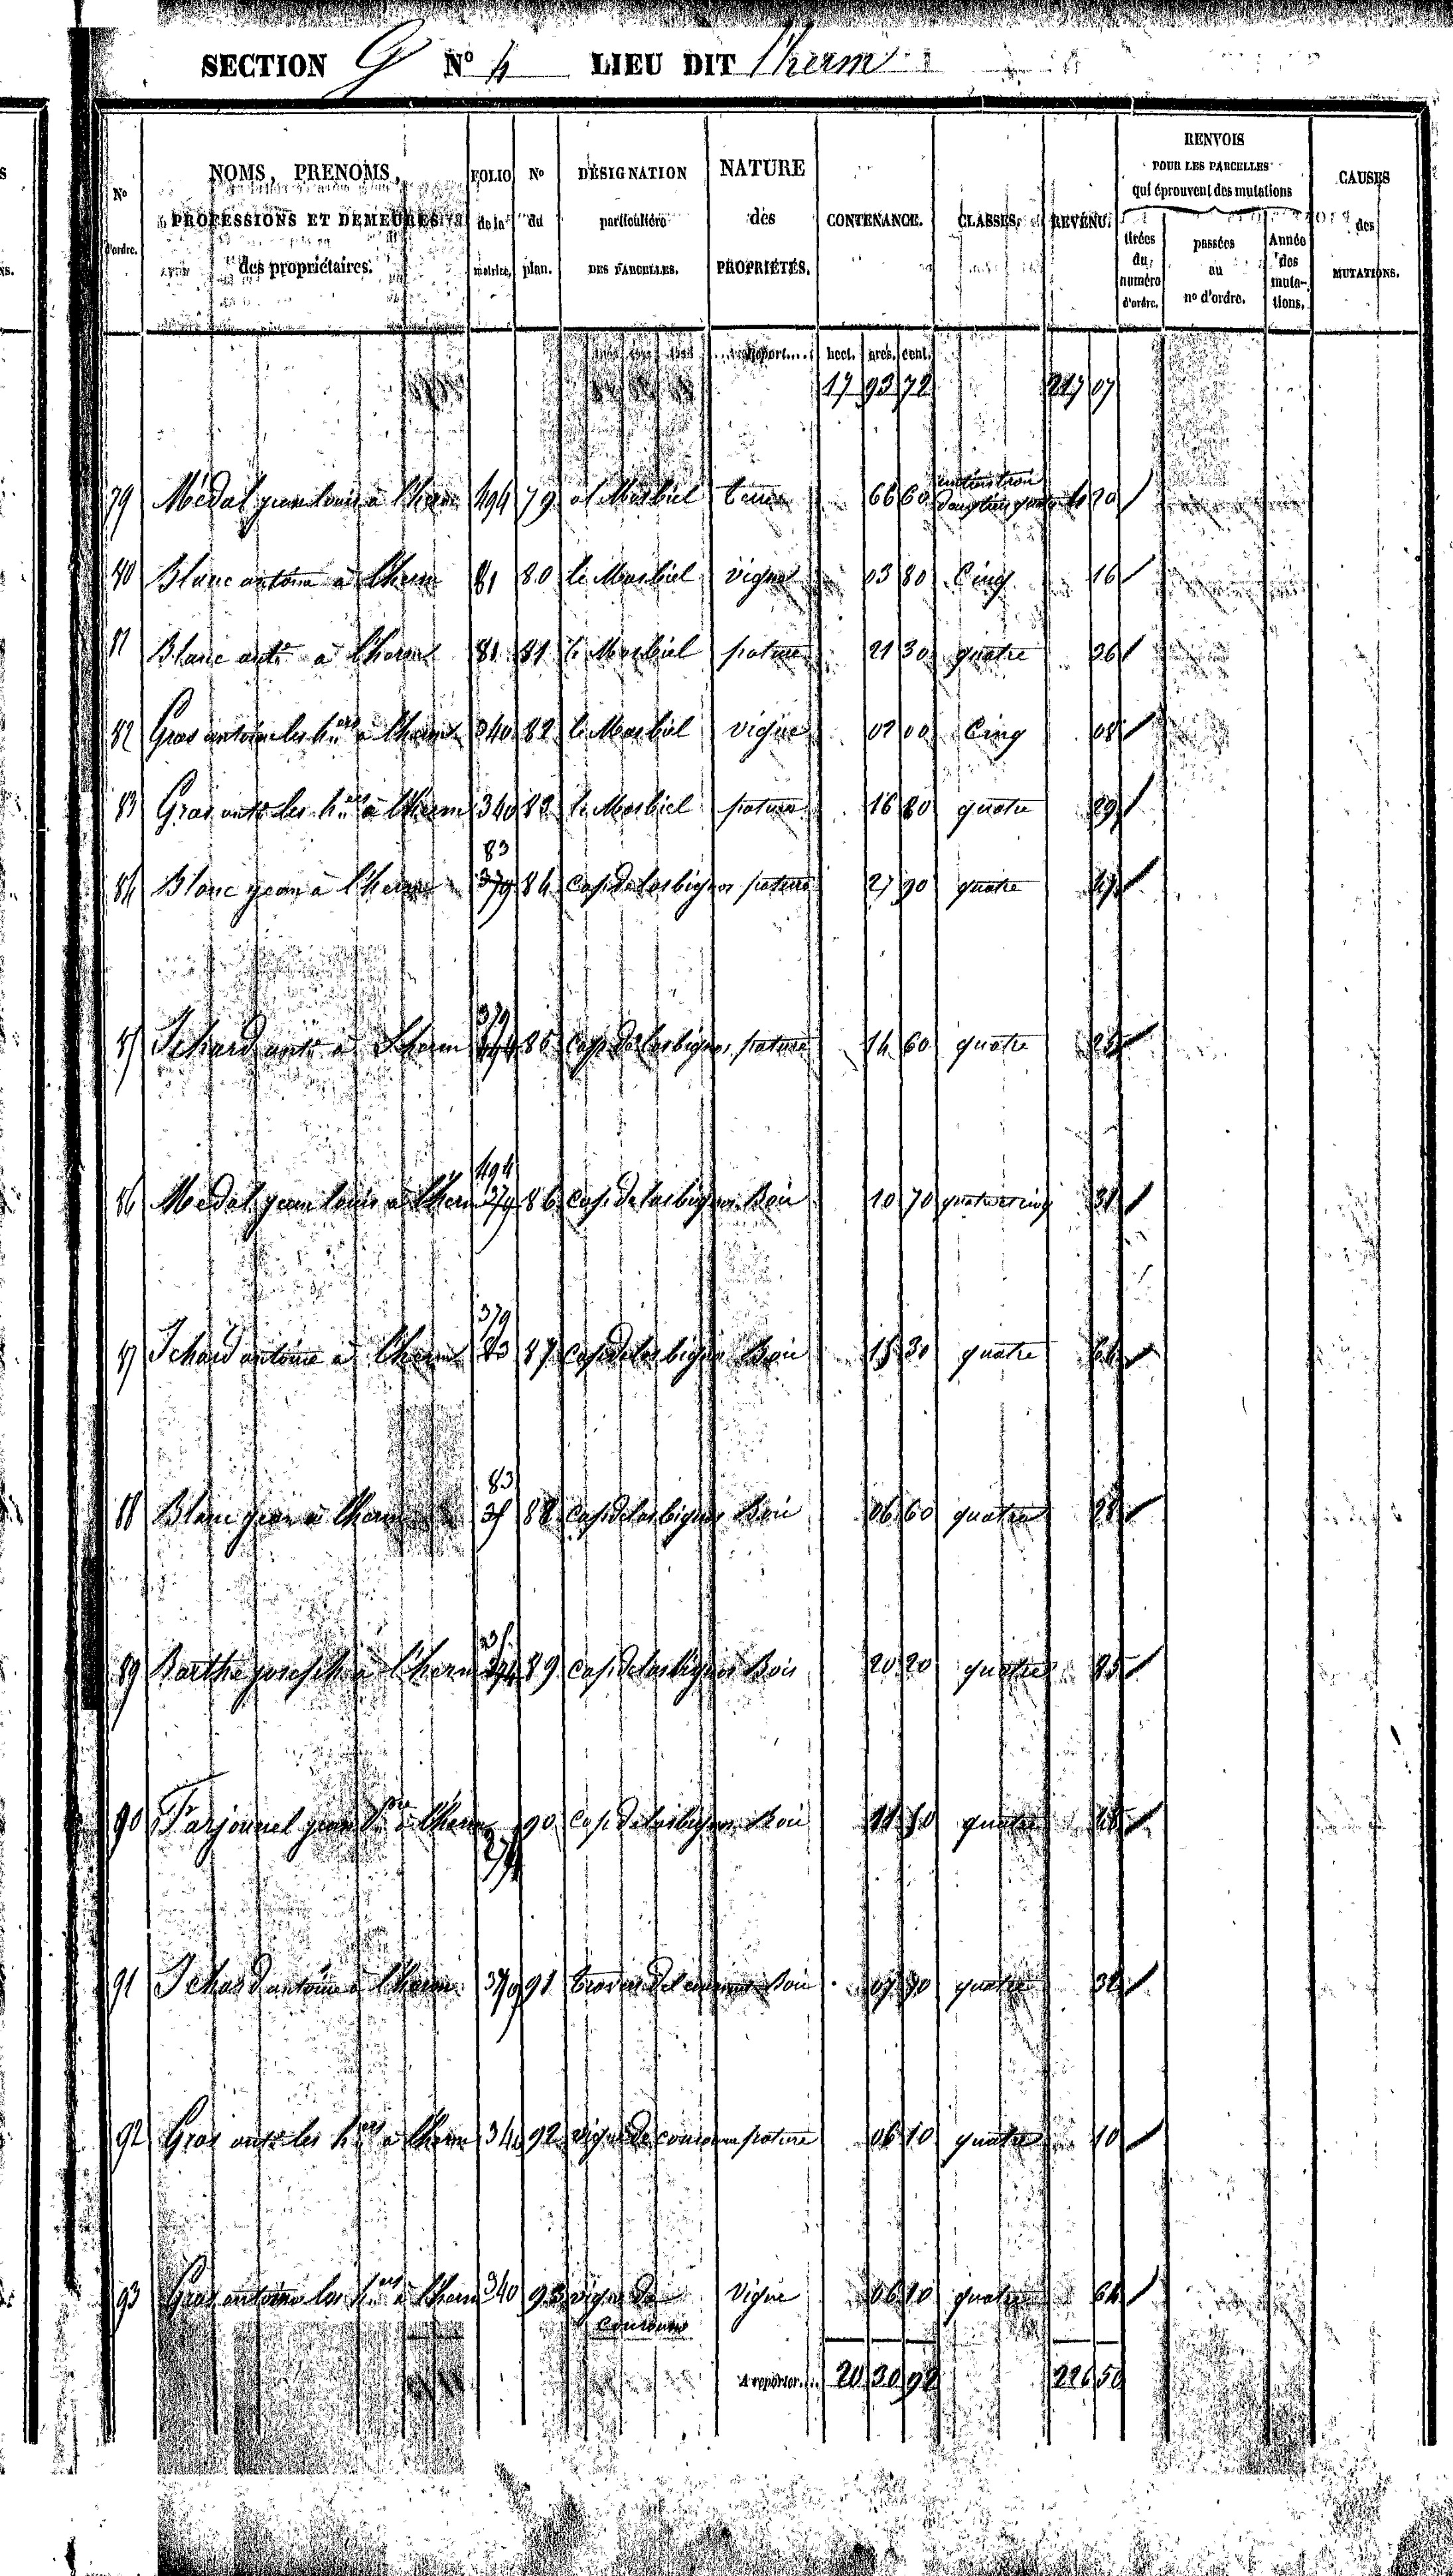 SECTION G N° 4 LIEU DIT l'herm
N° d'ordre. NOMS, PRENOMS, PROFESSIONS ET DEMEURES des propriétaires. FOLIO de la matrice. N° du plan. DÉSIGNATION particulière DES PARCELLES. NATURE des PROPRIÉTÉS. CONTENANCE. CLASSES. REVENU. RENVOIS POUR LES PARCELLES qui éprouvent des mutations tirées du numéro d'ordre. passées au n° d'ordre. Année des mutations. CAUSES des MUTATIONS.
Report.... hect. ares. cent.
17 93 72 217 07
79 Médal jean louis à l'herm 494 79 al Masbiel terre 66 60 4 20
80 Blanc antoine à l'herm 81 80 le Masbiel vigne 03 80 Cinq 16
81 Blanc ant.e à l'herm 81 81 le Masbiel pature 21 30 quatre 36
82 Gras antoine les h.ers à l'herm 340 82 le Masbiel vigne 02 00 Cinq 08
83 Gras ant.e les h.ers à l'herm 340 83 le Masbiel pature 16 80 quatre 29
83
84 Blanc jean à l'herm 379 84 cap de las bignes pature 27 90 quatre 47
379
85 Ichard ant.e à l'herm 85 cap de las bignes pature 14 60 quatre 25
494
86 Médal jean louis à l'herm 379 86 cap de las bignes Bois 10 70 quatre cinq 31
379
87 Ichard antoine à l'herm 83 87 cap de las bignes Bois 15 30 quatre 64
83
88 Blanc jean à l'herm 35 88 cap de las bignes Bois 06 60 quatre 28
35
89 Barthe joseph à l'herm 89 cap de las bignes Bois 20 20 quatre 85
90 Farjounel jean à l'herm 90 cap de las bignes Bois 11 50 quatre 48
91 Ichard antoine à l'herm 379 91 Bois 07 70 quatre 32
92 Gras ant.e les h.ers à l'herm 340 92 vigne de pature 06 10 quatre 10
93 Gras antoine les h.ers à l'herm 340 93 vigne de Vigne 06 10 quatre 64
A reporter... 20 30 92 226 50